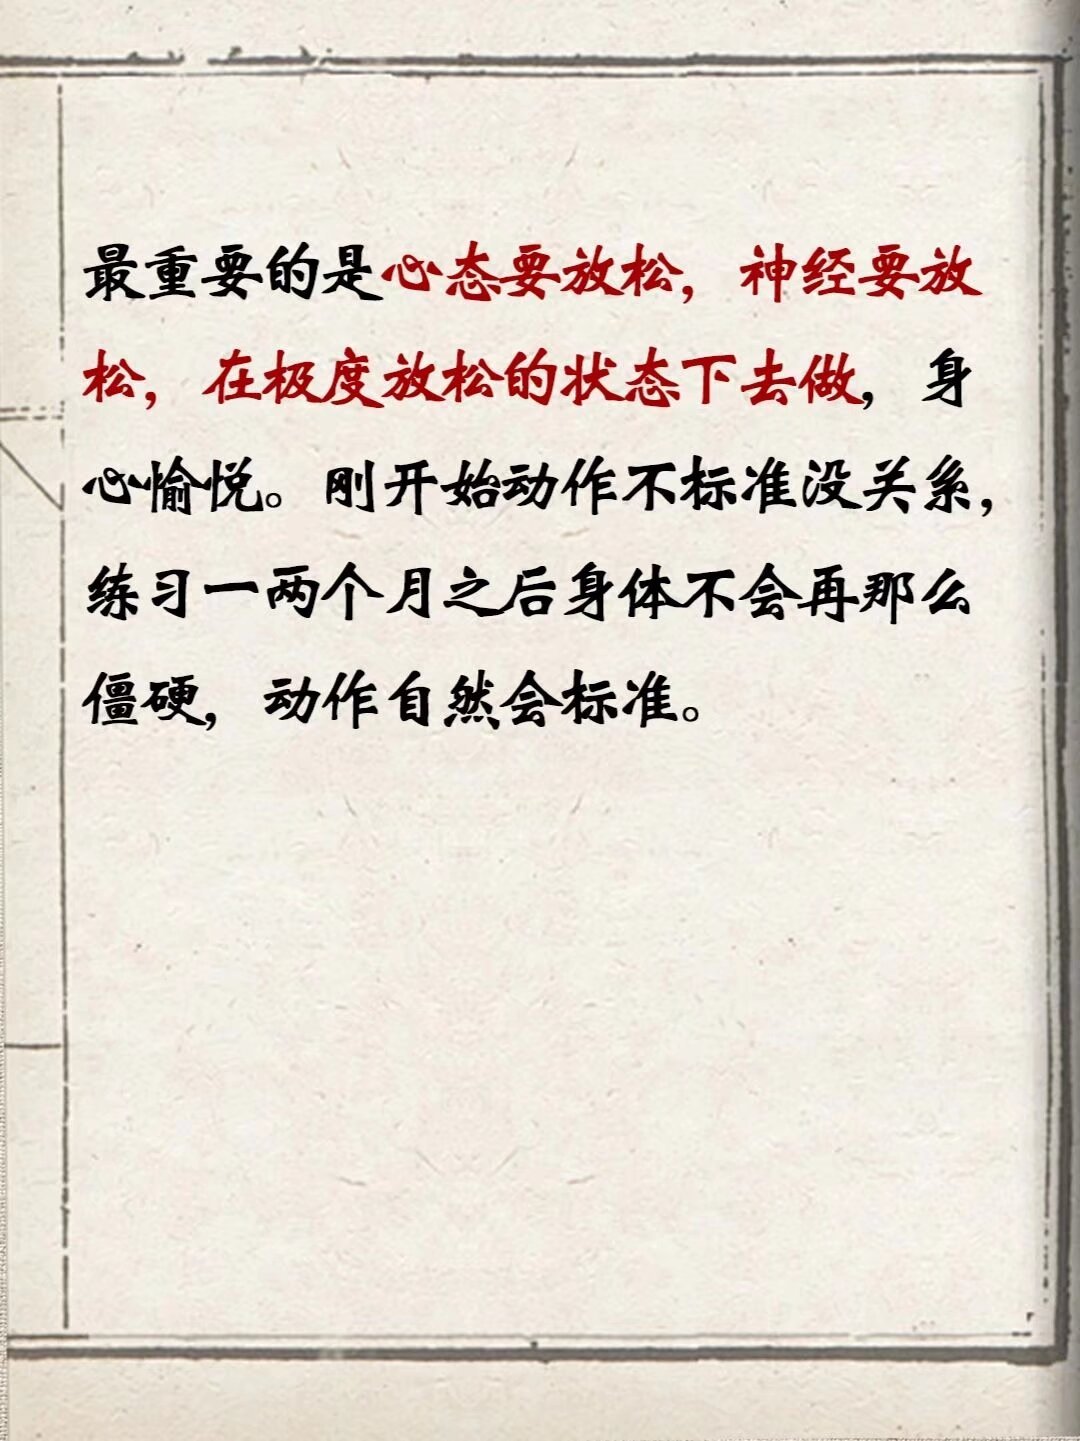 最重要的是心态要放松，神经要放
松，在极度放松的状态下去做，身
心愉悦。刚开始动作不标准没关系，
练习一两个月之后身体不会再那么
僵硬，动作自然会标准。